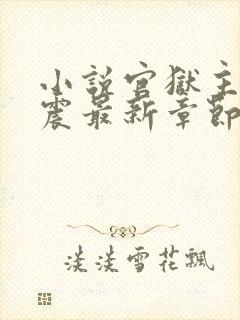 小說官獄主
震最新章節
淡淡雪花飄